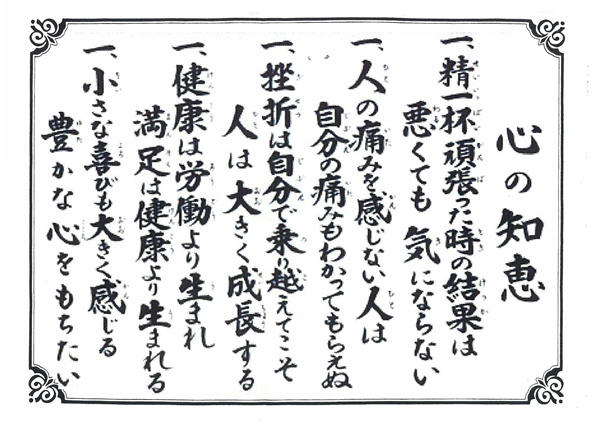 心の知恵
一、精一杯頑張った時の結果は
悪くても気にならない
一、人の痛みを感じない人は
自分の痛みもわかってもらえぬ
一、挫折は自分で乗り越えてこそ
人は大きく成長する
一、健康は労働より生まれ
満足は健康より生まれる
一、小さな喜びも大きく感じる
豊かな心をもちたい